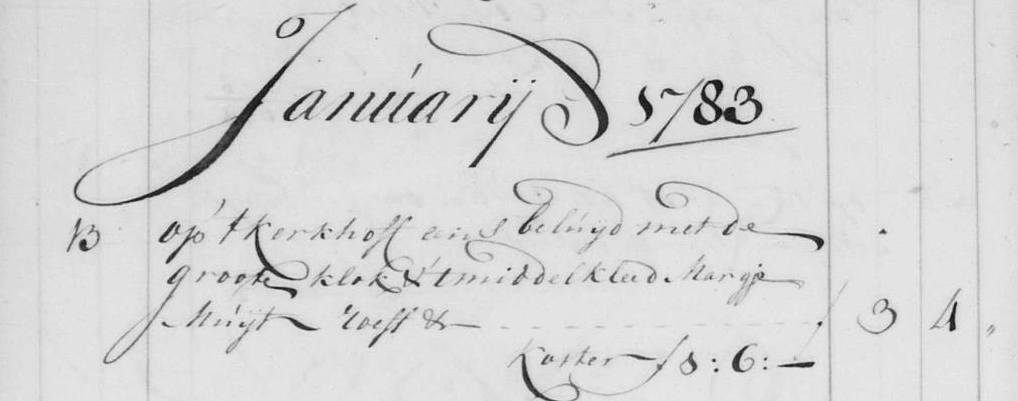 Januarij 1783
13 op 't kerkhoff eens beluyd met de
groote klok & 't middelkleed Margje
Muyt &c f 3 4 "
Koster f 1:6:—